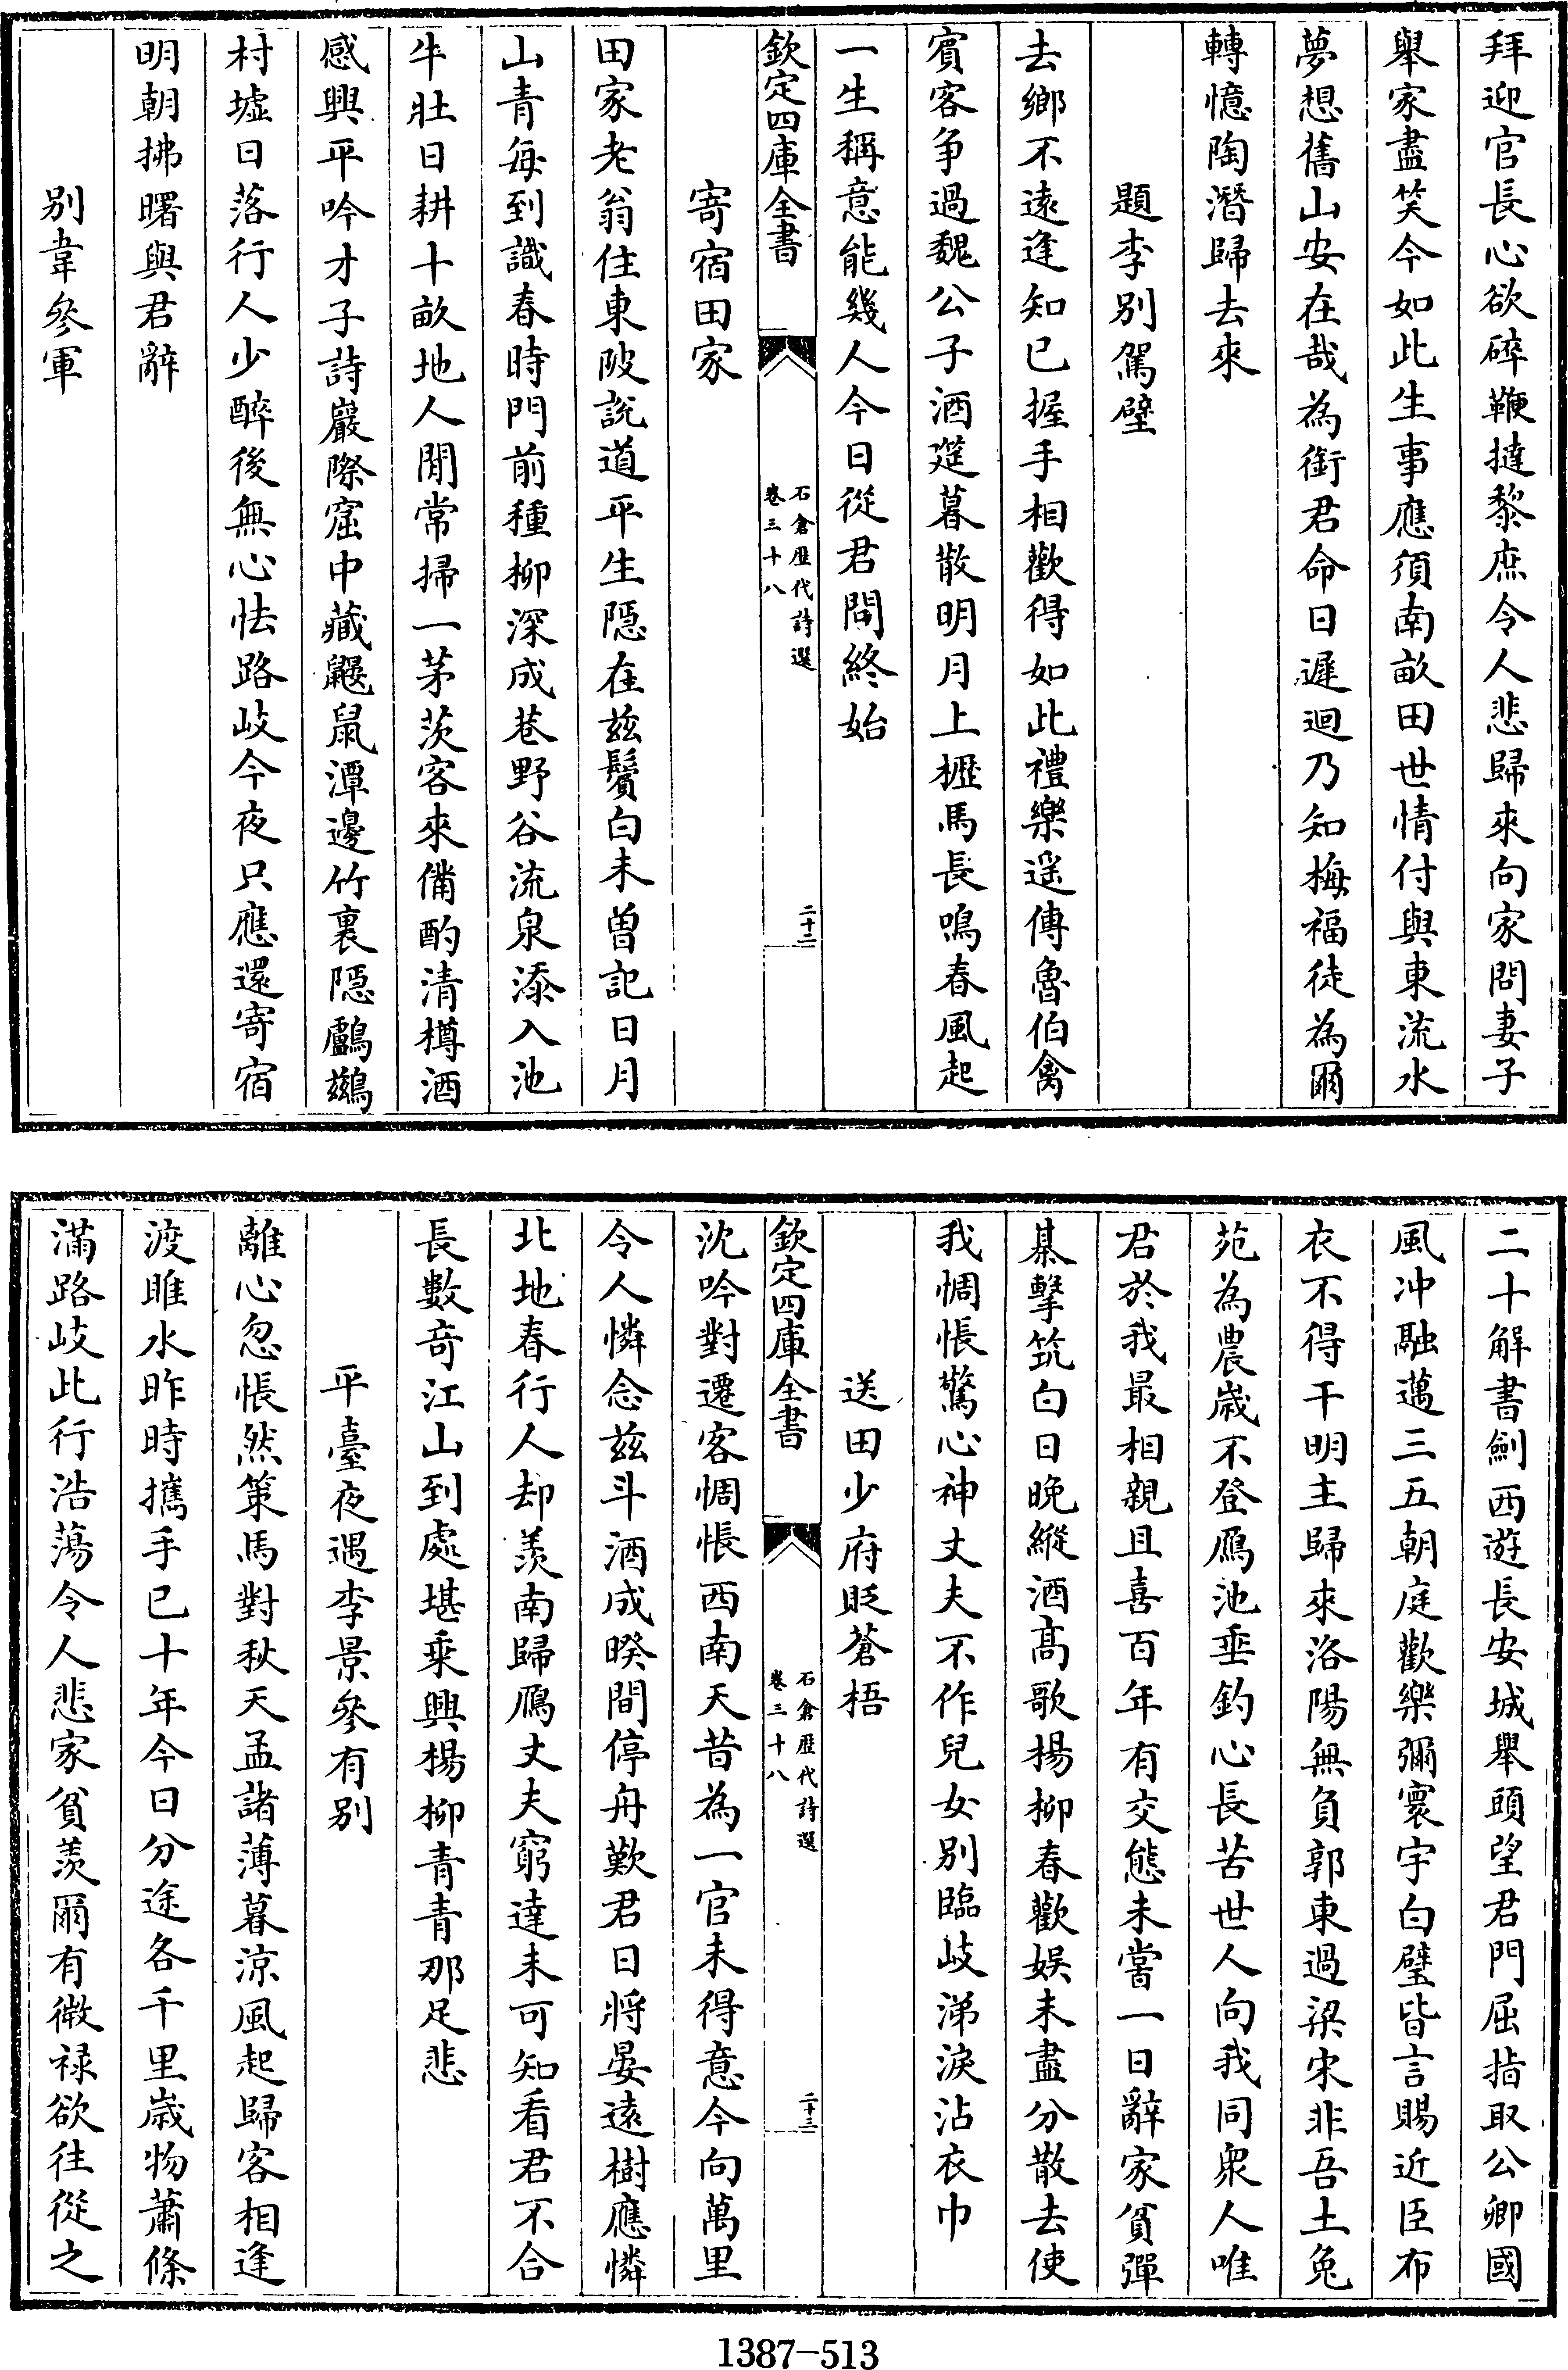 拜迎官長心欲碎鞭撻黎庶令人悲歸來向家問妻子
舉家盡笑今如此生事應須南畝田世情付與東流水
夢想舊山安在哉為銜君命日遲迴乃知梅福徒為爾
轉憶陶潛歸去來
題李別駕壁
去鄉不遠逢知已握手相歡得如此禮樂遥傳魯伯禽
賓客争過魏公子酒筵暮散明月上櫪馬長鳴春風起
一生稱意能幾人今日從君問終始
欽定四庫全書
石倉歷代詩選
卷三十八
二十二
寄宿田家
田家老翁住東陂說道平生隱在兹鬢白未曽記日月
山青每到識春時門前種柳深成巷野谷流泉添入池
牛壯日耕十畝地人閒常掃一茅茨客來備酌清樽酒
感興平吟才子詩巖際窟中藏鼴鼠潭邊竹裏隱鸕鷀
村墟日落行人少醉後無心怯路歧今夜只應還寄宿
明朝拂曙與君辭
別韋參軍
二十解書劍西遊長安城舉頭望君門屈指取公卿國
風冲融邁三五朝庭歡樂彌寰宇白璧皆言賜近臣布
衣不得干明主歸來洛陽無負郭東過梁宋非吾土兔
苑為農歲不登鴈池垂釣心長苦世人向我同衆人唯
君於我最相親且喜百年有交態未嘗一日辭家貧彈
棊擊筑白日晚縱酒高歌楊柳春歡娛未盡分散去使
我惆悵驚心神丈夫不作兒女别臨歧涕淚沾衣巾
送田少府貶蒼梧
欽定四庫全書
石倉歷代詩選
卷三十八
二十三
沈吟對遷客惆悵西南天昔為一官未得意今向萬里
令人憐念兹斗酒成暌間停舟歎君日將晏遠樹應憐
北地春行人却羨南歸鴈丈夫窮達未可知看君不合
長數奇江山到處堪乘興楊柳青青那足悲
平臺夜遇李景參有别
離心忽悵然策馬對秋天孟諸薄暮涼風起歸客相逢
渡睢水昨時攜手已十年今日分途各千里歲物蕭條
滿路歧此行浩蕩令人悲家貧羨爾有微禄欲往從之
1387-513